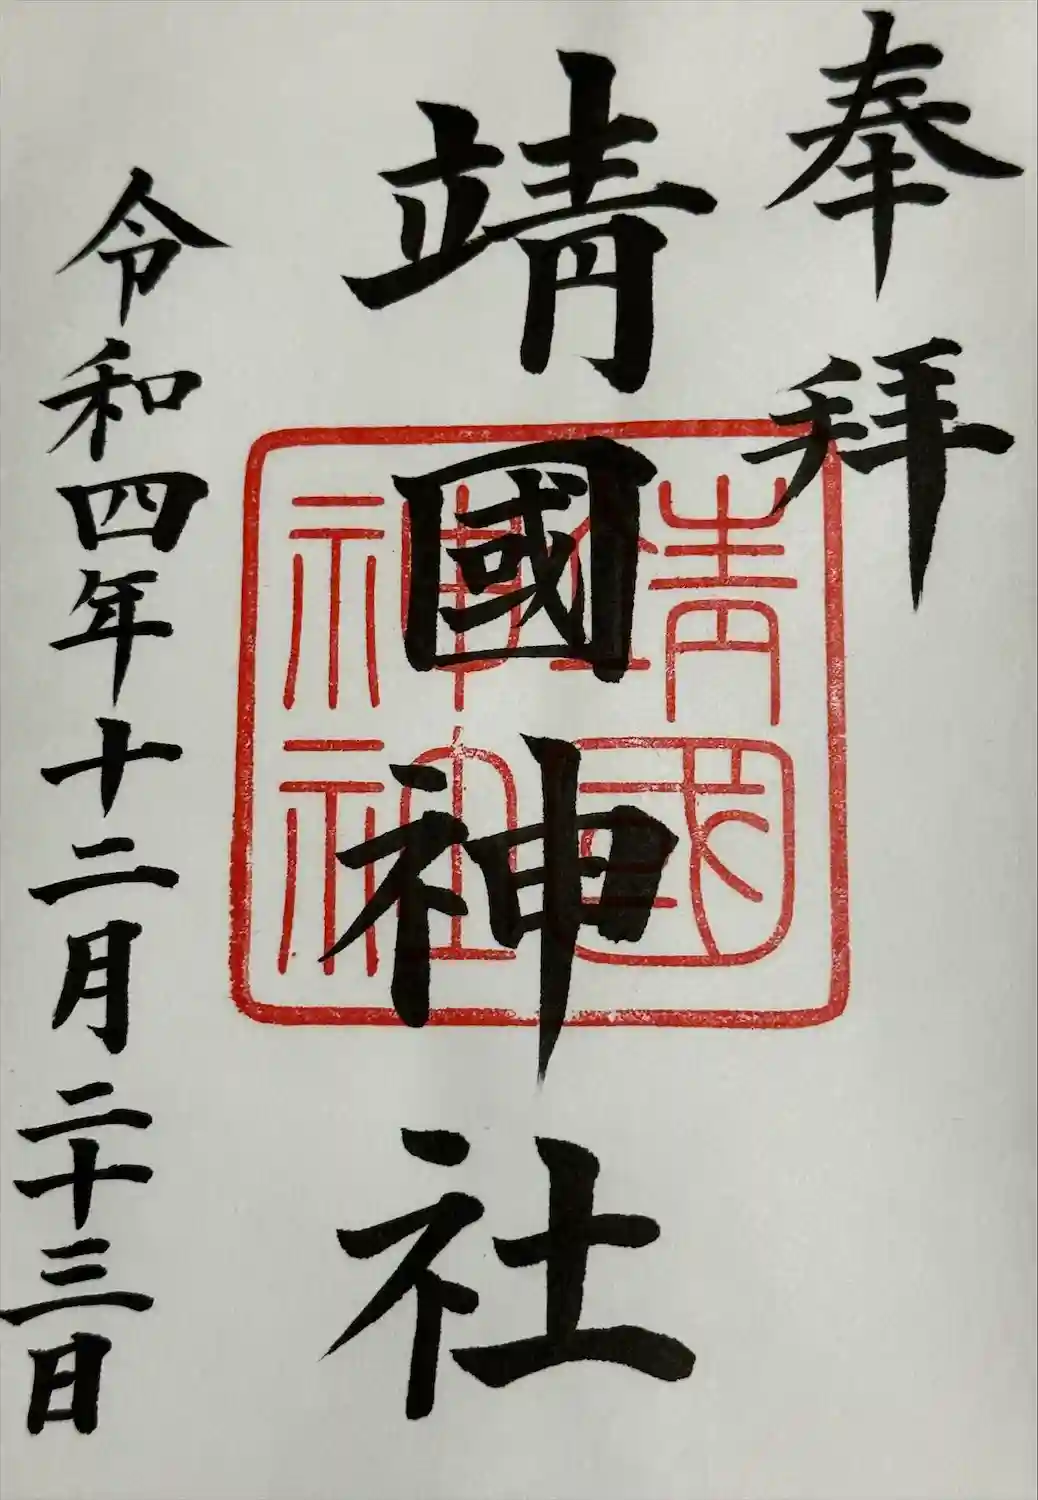 奉拜
靖國神社
靖國
神社
令和四年十二月二十三日